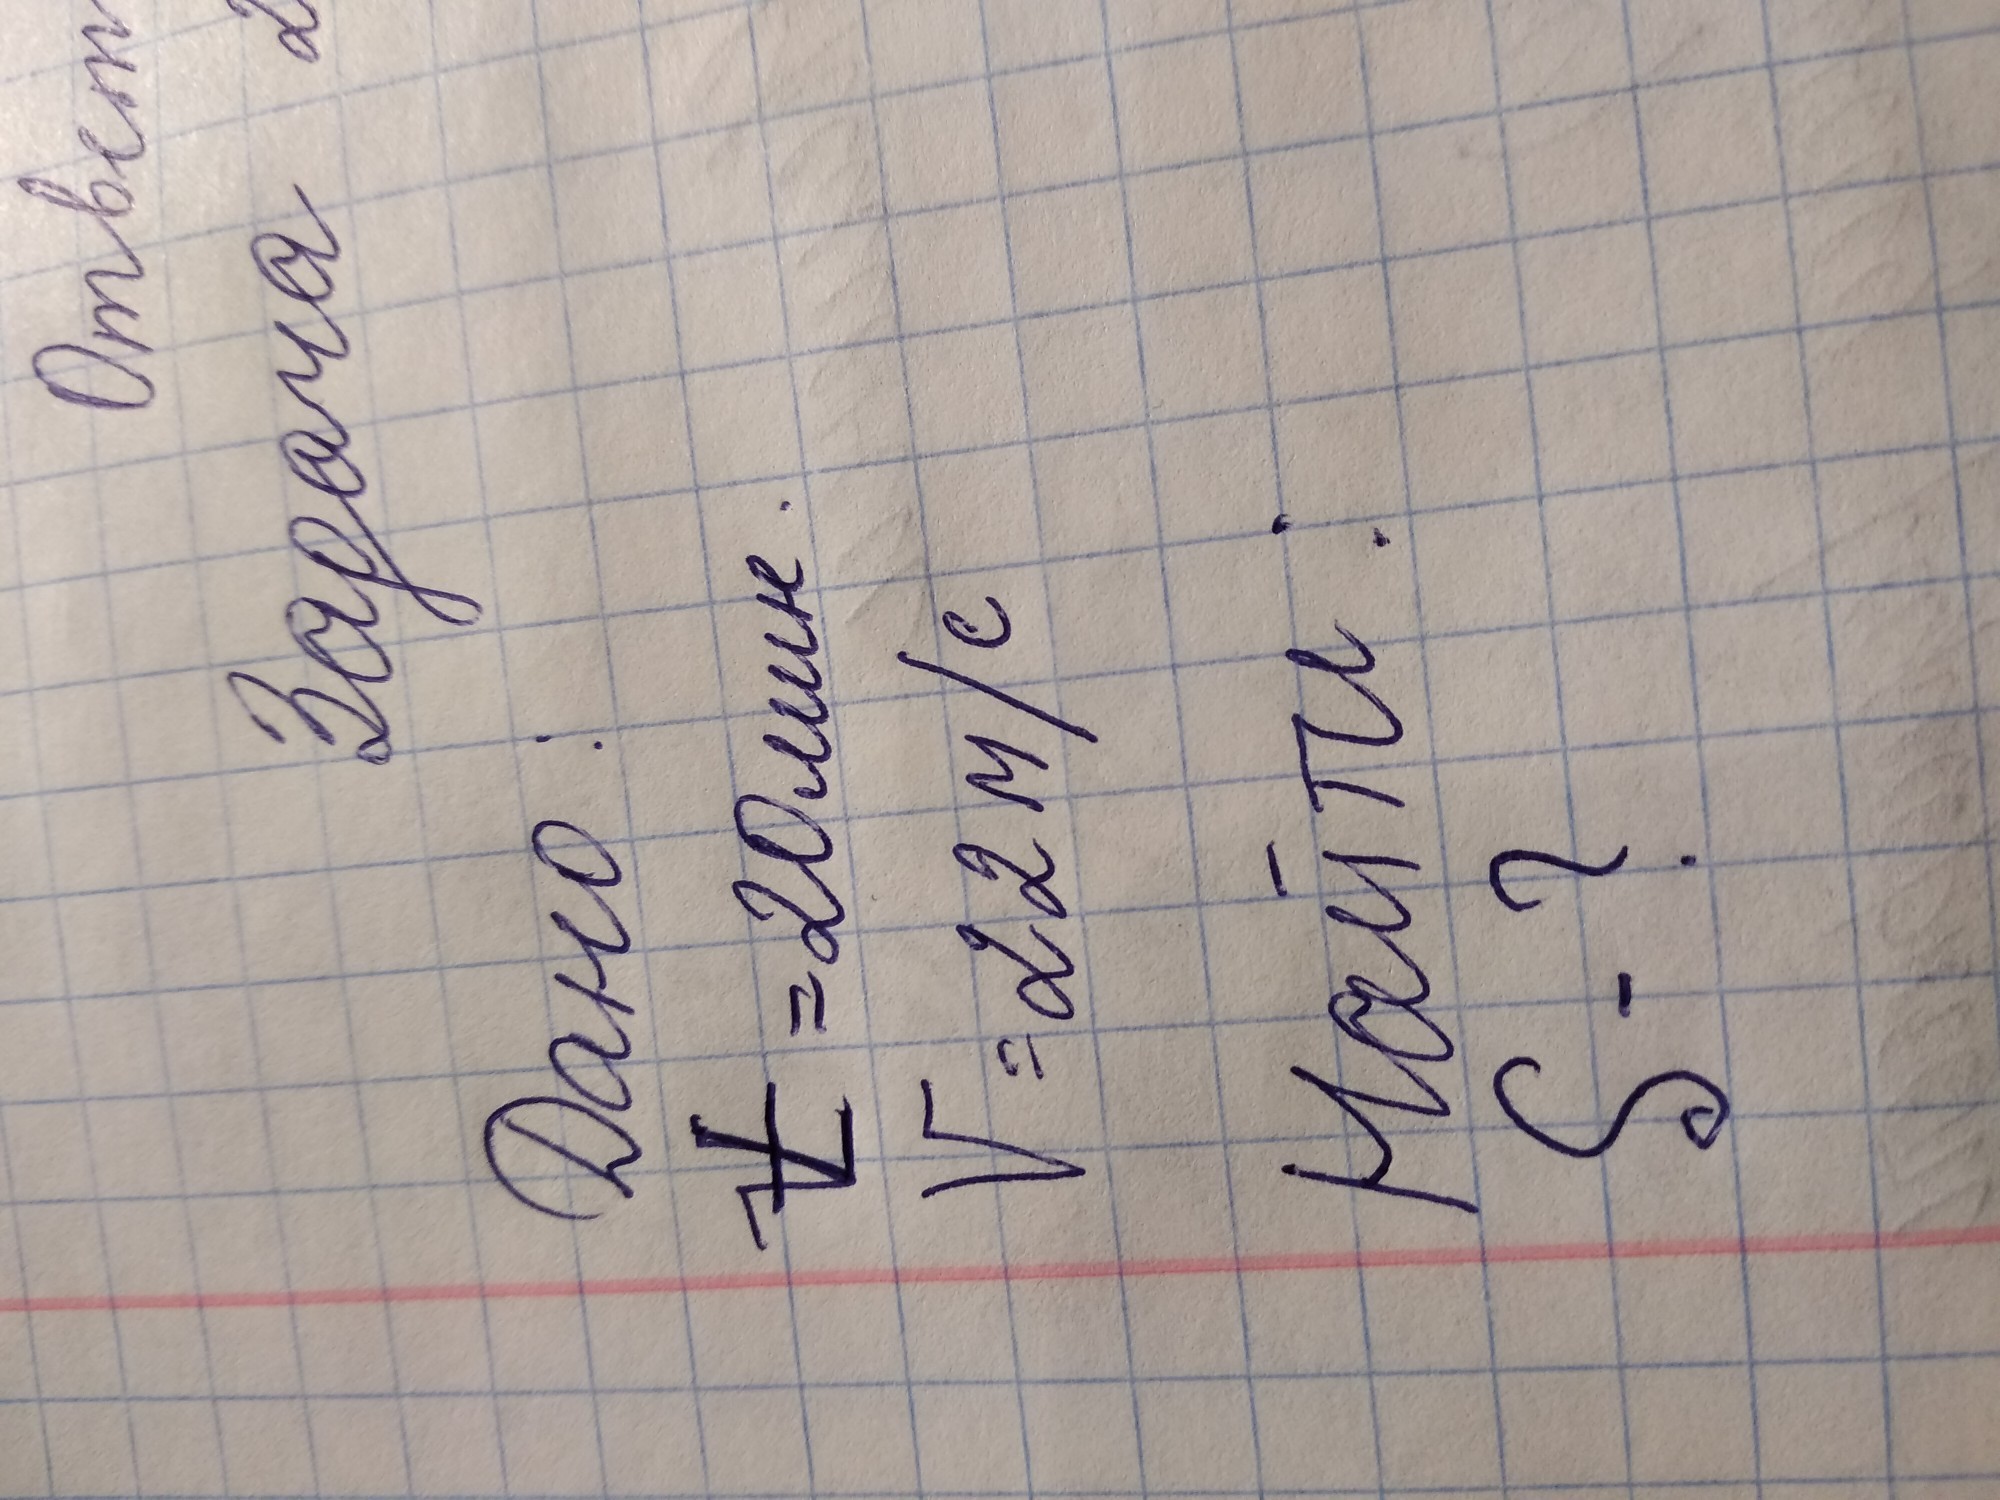 Ответ
Задача 2
Дано:
t = 20мин.
V = 22 м/с
Найти:
S - ?